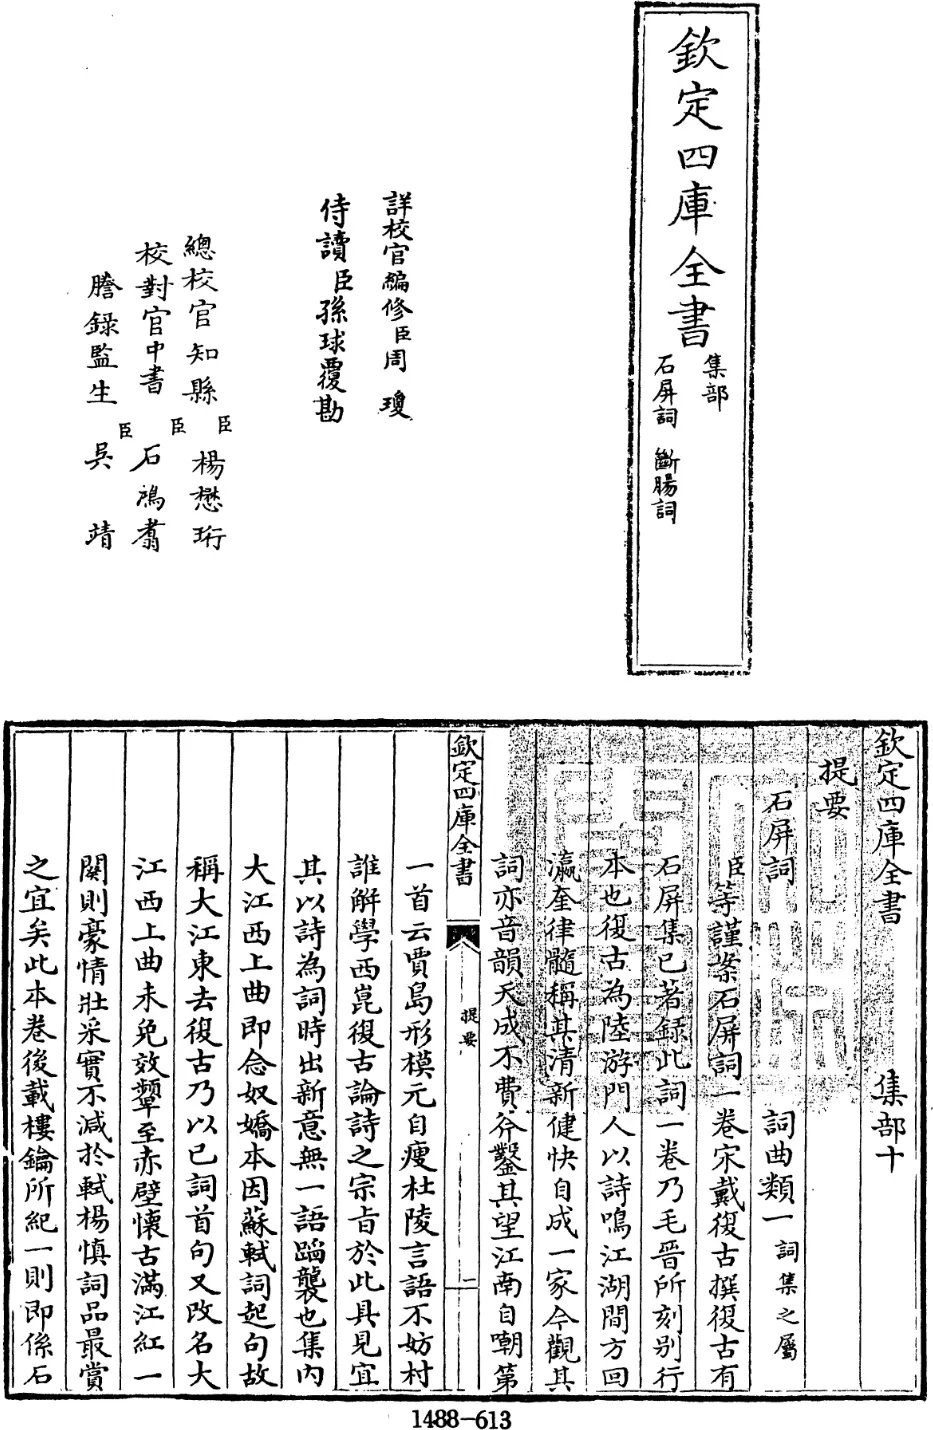 欽定四庫全書
集部
石屏詞 斷腸詞
詳校官編修臣周瓊
侍讀臣孫球覆勘
總校官知縣臣楊懋珩
校對官中書臣石鴻翥
謄錄監生臣吳靖
欽定四庫全書 集部十
提要
石屏詞 詞曲類一詞集之屬
臣等謹案石屏詞一卷宋戴復古撰復古有
石屏集已著録此詞一卷乃毛晉所刻別行
本也復古為陸游門人以詩鳴江湖間方回
瀛奎律髓稱其清新健快自成一家今觀其
詞亦音韻天成不費斧鑿其望江南自嘲第
欽定四庫全書 提要 一
一首云賈島形模元自瘦杜陵言語不妨村
誰解學西崑復古論詩之宗旨於此具見宜
其以詩為詞時出新意無一語蹈襲也集内
大江西上曲即念奴嬌本因蘇軾詞起句故
稱大江東去復古乃以己詞首句又改名大
江西上曲未免效顰至赤壁懷古滿江紅一
闋則豪情壯采實不減於軾楊慎詞品最賞
之宜矣此本卷後載樓鑰所紀一則即係石
1488-613